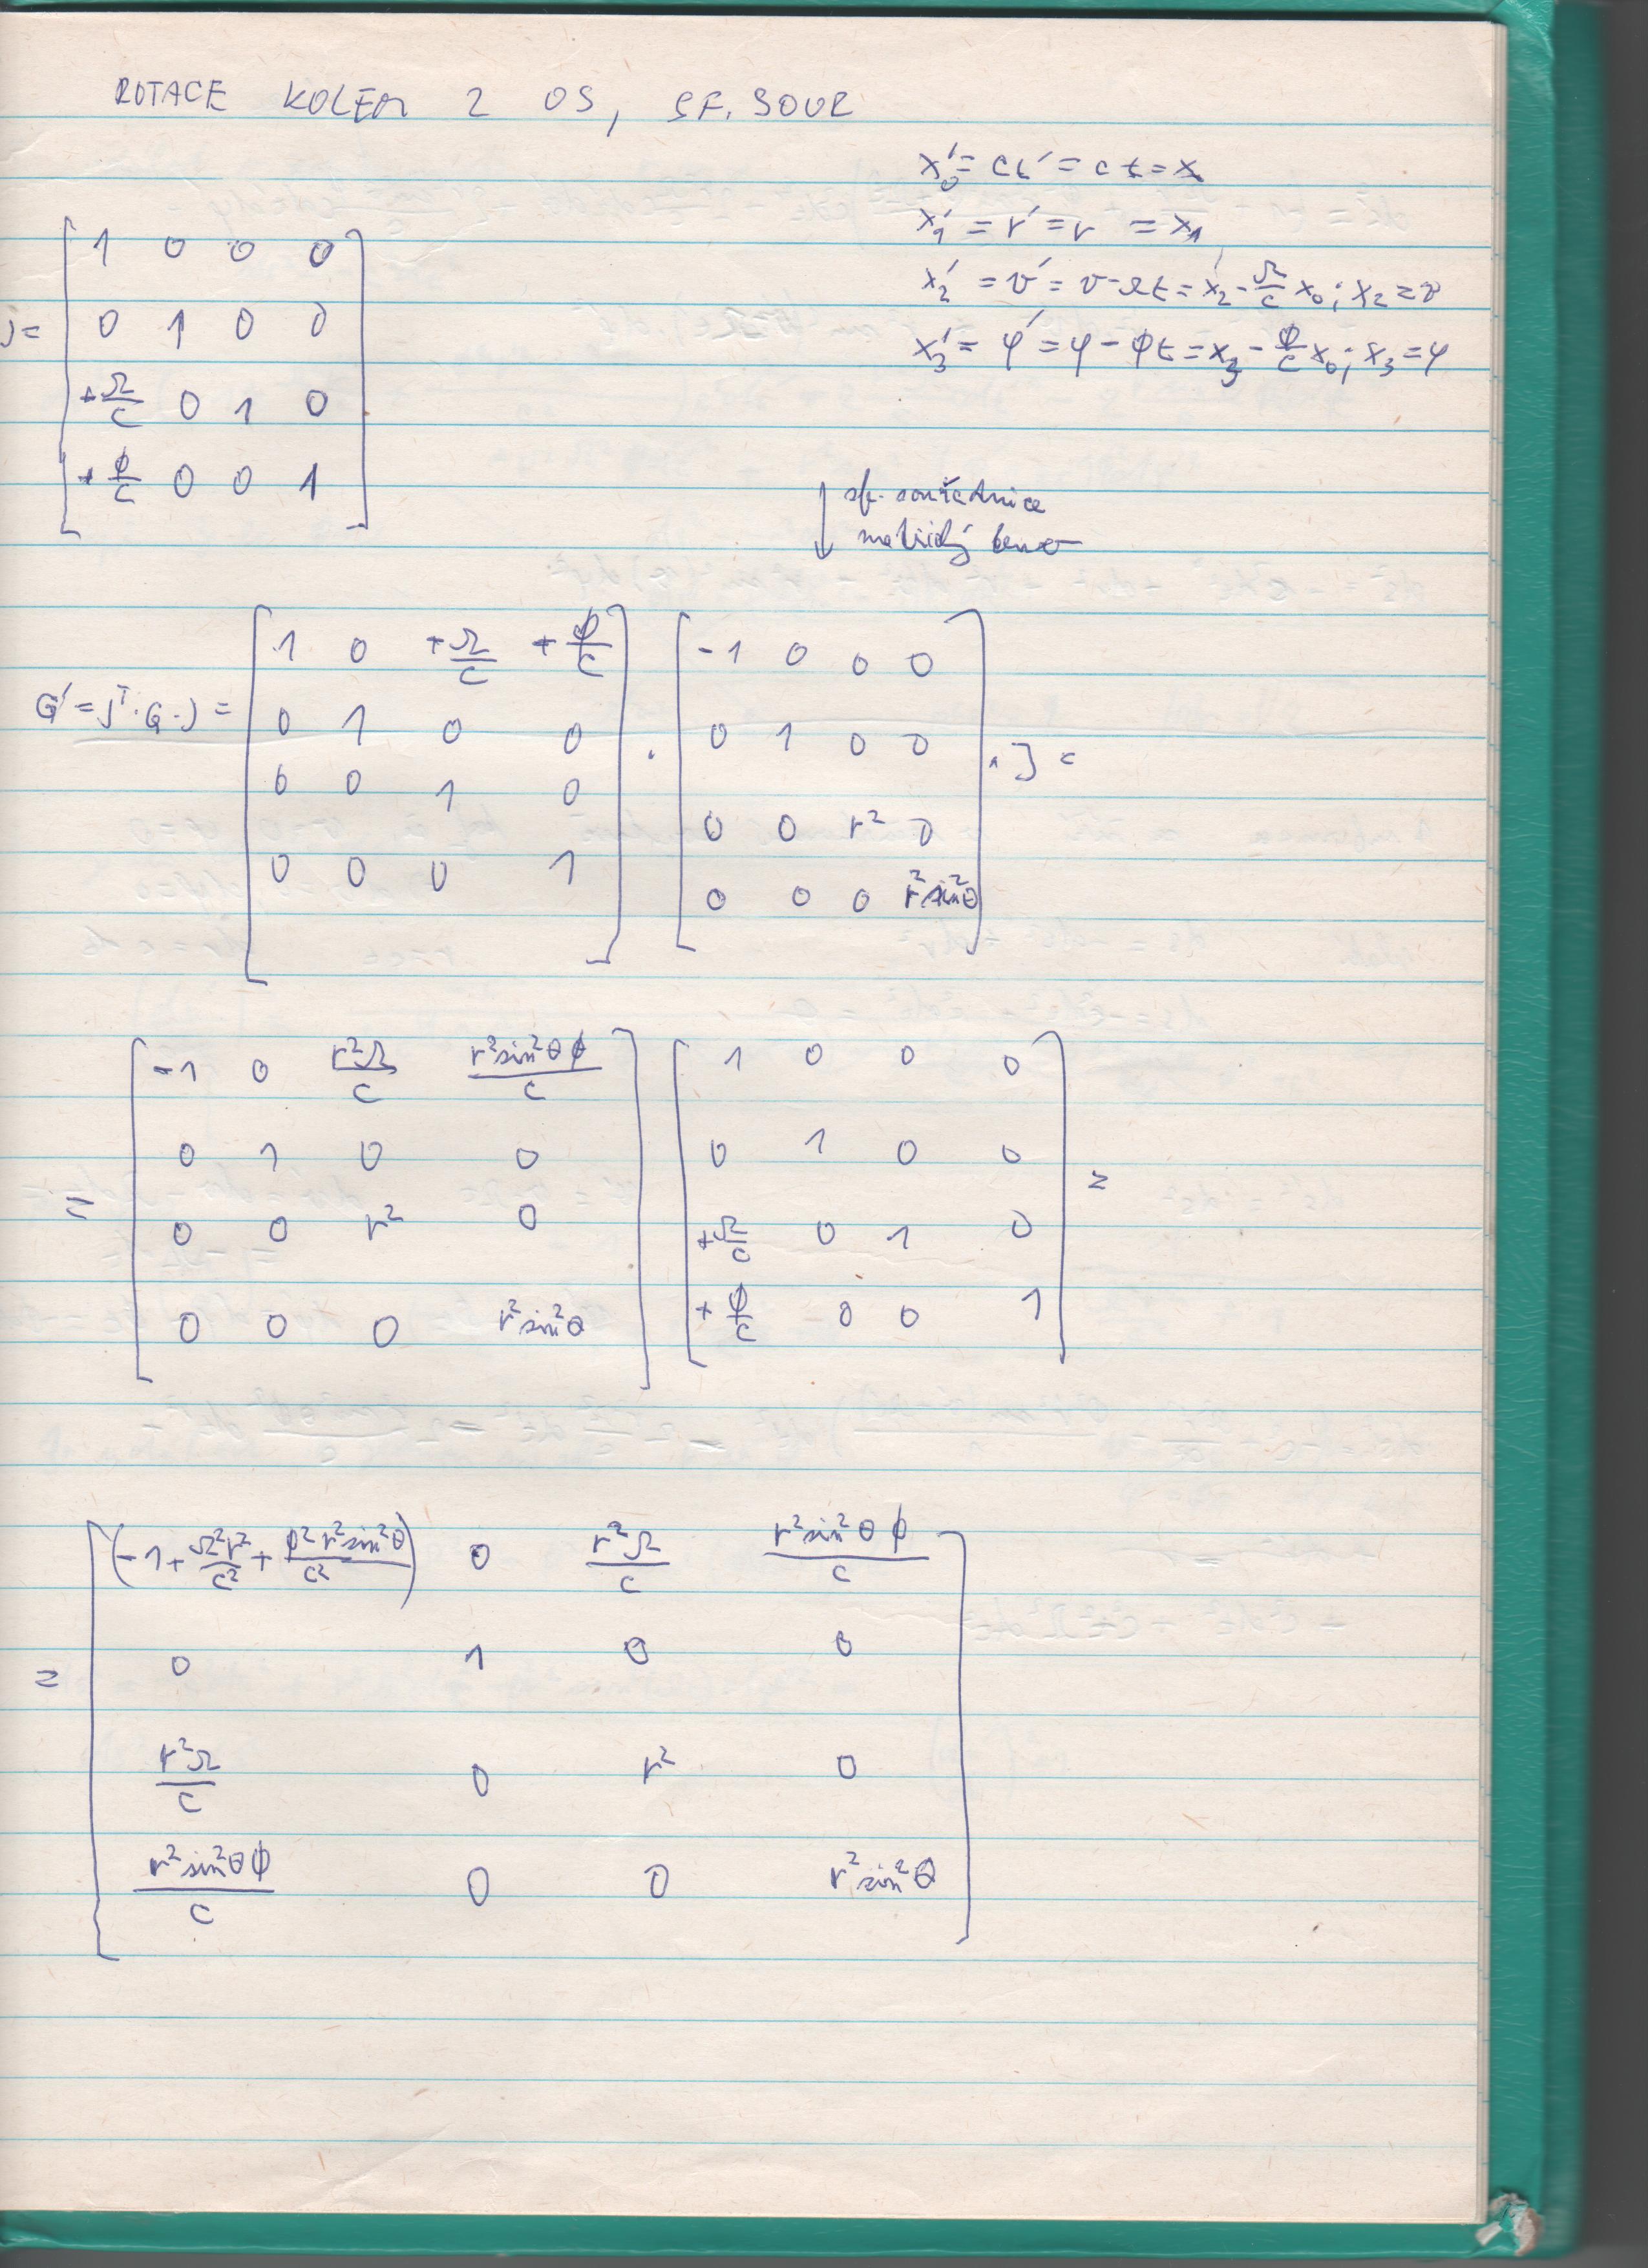 ROTACE KOLEM 2 OS, SF. SOUR
x₀' = ct' = ct = x
x₁' = r' = r = x₁
x₂' = ϑ' = ϑ - Ωt = x₂ - Ω/c x₀; x₂ = ϑ
x₃' = φ' = φ - ϕt = x₃ - ϕ/c x₀; x₃ = φ
J = [ 1 0 0 0
0 1 0 0
+Ω/c 0 1 0
+ϕ/c 0 0 1 ]
↓ sf. souřadnice
metrický tenzor
G' = Jᵀ·G·J = [ 1 0 +Ω/c +ϕ/c ] · [ -1 0 0 0 ] · J =
0 1 0 0 0 1 0 0
0 0 1 0 0 0 r² 0
0 0 0 1 0 0 0 r²sin²θ
= [ -1 0 r²Ω/c r²sin²θϕ/c ] [ 1 0 0 0 ] =
0 1 0 0 0 1 0 0
0 0 r² 0 +Ω/c 0 1 0
0 0 0 r²sin²θ +ϕ/c 0 0 1
= [ (-1 + Ω²r²/c² + ϕ²r²sin²θ/c²) 0 r²Ω/c r²sin²θϕ/c
0 1 0 0
r²Ω/c 0 r² 0
r²sin²θϕ/c 0 0 r²sin²θ ]